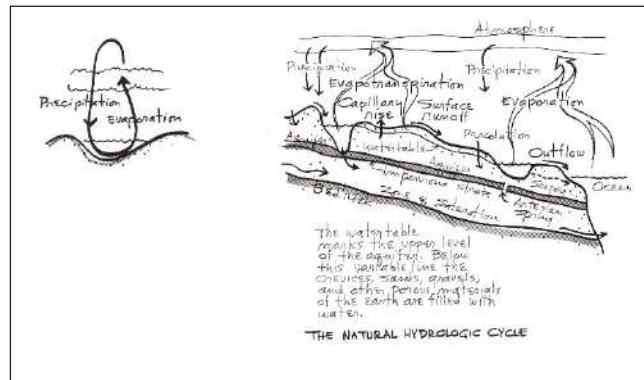 Precipitation
Evaporation
Atmosphere
Precipitation
Precipitation
Evapotranspiration
Evaporation
Capillary
rise
Surface
runoff
Percolation
Outflow
Aquifer
watertable
Aquifer
Impervious strata
Seepage
Ocean
Bedrock
Zone of Saturation
Artesian
Spring
The watertable
marks the upper level
of the aquifer. Below
this variable line the
crevices, sands, gravels,
and other porous materials
of the earth are filled with
water.
THE NATURAL HYDROLOGIC CYCLE